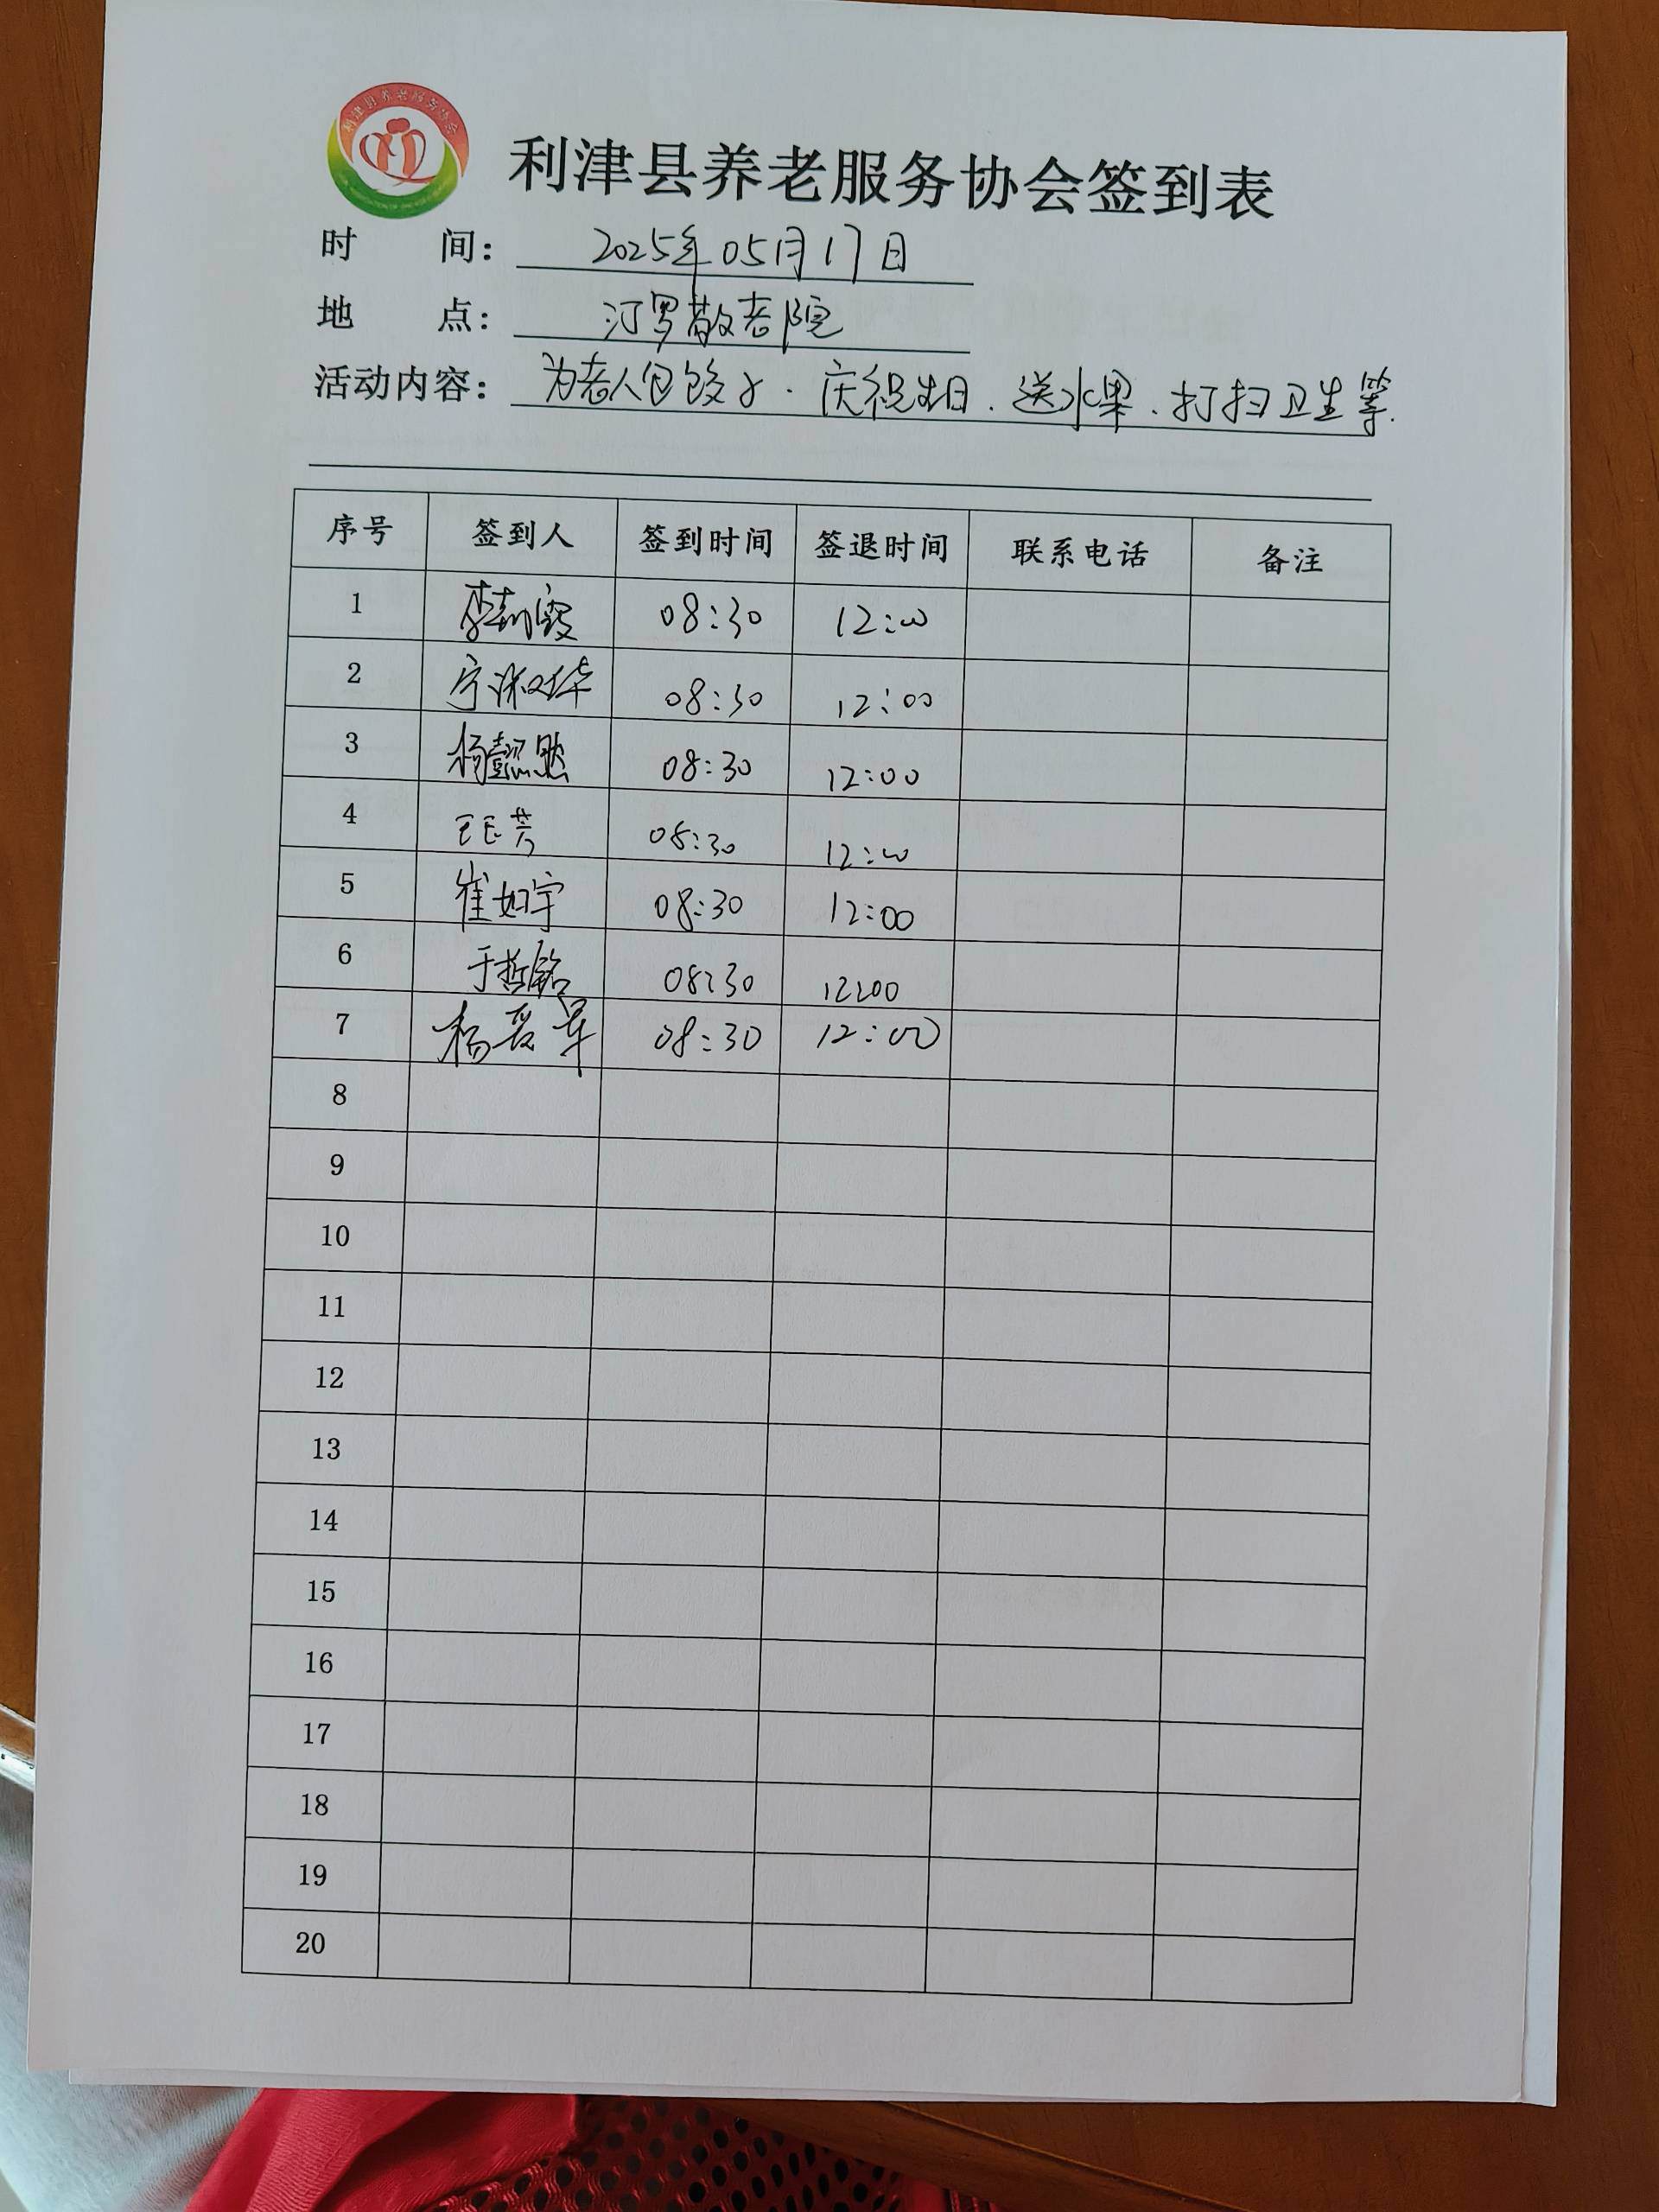 利津县养老服务协会
利津县养老服务协会签到表
时 间: 2025年05月17日
地 点: 汀罗敬老院
活动内容: 为老人包饺子、庆祝生日、送水果、打扫卫生等.
序号 签到人 签到时间 签退时间 联系电话 备注
1 李莉霞 08:30 12:00
2 宁淑华 08:30 12:00
3 杨懿然 08:30 12:00
4 王玉芳 08:30 12:00
5 崔如宇 08:30 12:00
6 于哲铭 08:30 12:00
7 杨爱军 08:30 12:00
8
9
10
11
12
13
14
15
16
17
18
19
20